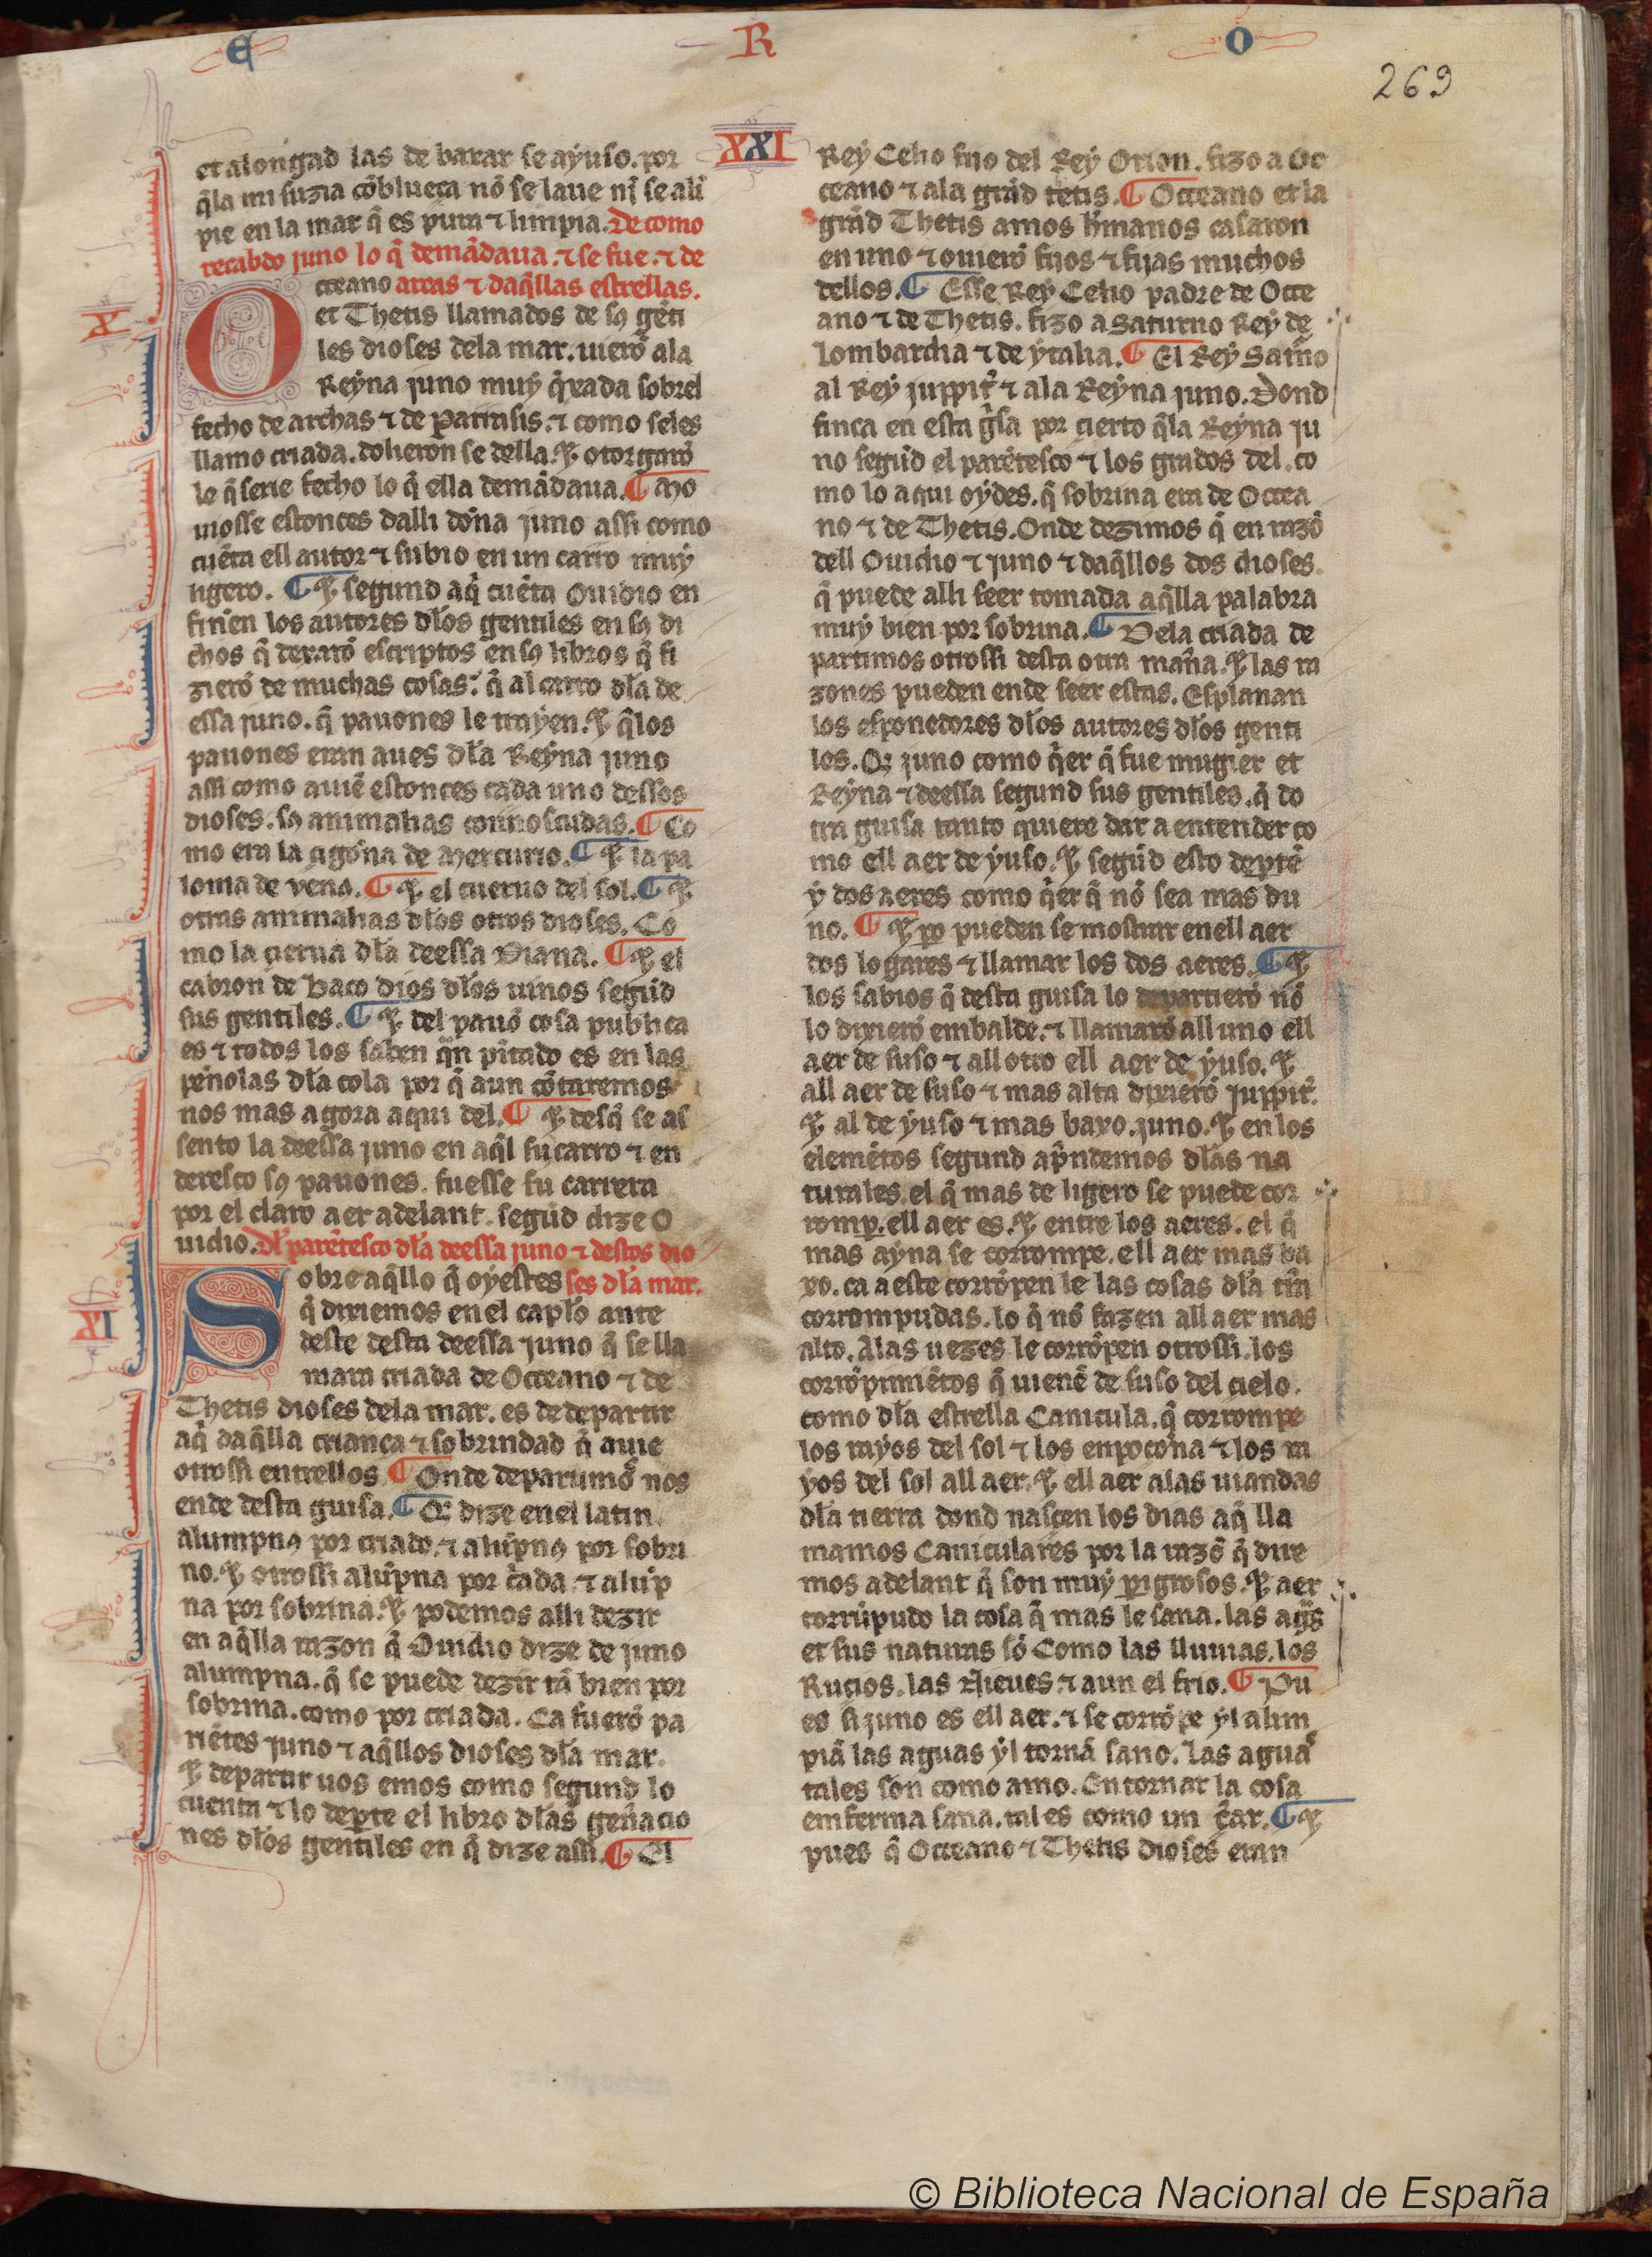 E R O
269
XXI
et alongad las de baxar se ayuso. por
q̃la mi fuzia cõblueça nõ se laue nĩ se alĩ
pie en la mar q̃ es pura ⁊ limpia. De como
recabdo juno lo q̃ demãdaua. ⁊ se fue. ⁊ de
arcas ⁊ daq̃llas estrellas.
X
Occeano
et Thetis llamados de sꝯ gẽti
les dioses dela mar. uierõ ala
Reyna juno muy q̃xada sobrel
fecho de archas ⁊ de Parrasis. ⁊ como seles
llamo criada. dolieron se della. ⁊ otorgarõ
le q̃ serie fecho lo q̃ ella demãdaua. ¶ Mo
uiosse estonces dalli dona juno assi como
cuẽta ell autor ⁊ subio en un carro muy
ligero. ¶ ⁊ segund aq̃ cuẽta Ouidio en
finen los autores dlos gentiles en sꝯ di
chos q̃ dexarõ escriptos en sꝯ libros q̃ fi
zierõ de muchas cosas. q̃ al carro dla de
essa juno. q̃ pauones le trayen. ⁊ q̃ los
pauones eran aues dla Reyna juno
assi como auiẽ estonces cada uno dessos
dioses. sꝯ animalias connosçudas. ¶ Co
mo era la çigona de Mercurio. ¶ ⁊ la pa
loma de venꝯ. ¶ ⁊ el cueruo del sol. ¶ ⁊
otras animalias dlos otros dioses. Co
mo la çierua dla deessa Diana. ¶ ⁊ el
cabron de baco dios dlos uinos segũd
sus gentiles. ¶ ⁊ del pauõ cosa publica
es ⁊ todos los saben q̃n pĩtado es en las
penolas dla cola por q̃ aun cõtaremos
nos mas agora aqui del. ¶ ⁊ desq̃ se as
sento la deessa juno en aq̃l su carro ⁊ en
deresco sꝯ pauones. fuesse su carrera
por el claro aer adelant. segũd dize O
uidio. Dl parẽtesco dla deessa juno ⁊ destos dio
ses dla mar.
XI
Sobre aq̃llo q̃ oyestes
q̃ dixiemos en el capłõ ante
deste desta deessa juno q̃ se lla
mara criada de Occeano ⁊ de
Thetis dioses dela mar. es de departir
aq̃ daq̃lla criança ⁊ sobrindad q̃ auie
otrossi entrellos. ¶ Onde departimõ nos
ende desta guisa. ¶ Q dize en el latin
alumpnꝯ por criado. ⁊ alũpnꝯ por sobri
no. ⁊ otrossi alũpna por c̃ada. ⁊ alũp
na por sobrina. ⁊ podemos alli dezir
en aq̃lla razon q̃ Ouidio dize de juno
alumpna. q̃ se puede dezir tã bien por
sobrina. como por criada. Ca fuerõ pa
riẽtes juno ⁊ aq̃llos dioses dla mar.
⁊ departir uos emos como segund lo
cuenta ⁊ lo dep̱te el libro dlas geñacio
nes dlos gentiles en q̃ dize assi. ¶ El
Rey Celio fijo del Rey Orion. fizo a Oc
ceano ⁊ ala grãd tetis. ¶ Occeano et la
grãd Thetis amos hr̃manos casaron
en uno ⁊ ouierõ fijos ⁊ fijas muchos
dellos. ¶ Esse Rey Celio padre de Occe
ano ⁊ de Thetis. fizo a Saturno Rey de
lombardia ⁊ de ytalia. ¶ El Rey Satr̃no
al Rey juppit̃ ⁊ ala Reyna juno. Dond
finca en esta g̃sa por çierto q̃la Reyna ju
no segũd el parẽtesco ⁊ los grados del. co
mo lo aqui oydes. q̃ sobrina era de Occea
no ⁊ de Thetis. Onde dezimos q̃ en razõ
dell Ouidio ⁊ juno ⁊ daq̃llos dos dioses.
q̃ puede alli seer tomada aq̃lla palabra
muy bien por sobrina. ¶ Dela criada de
partimos otrossi desta otra mañа. ⁊ las ra
zones pueden ende seer estas. Esplanan
los esponedores dlos autores dlos genti
los. Q juno como q̃er q̃ fue mugier et
Reyna ⁊ deessa segund sus gentiles. q̃ do
tra guisa tanto quiere dar a entender co
mo ell aer de yuso. ⁊ segũd esto dep̱tẽ
y dos aeres como q̃er q̃ nõ sea mas du
no. ¶ ⁊ p̱o pueden se mostrar enell aer
dos logares ⁊ llamar los dos aeres. ¶ ⁊
los sabios q̃ desta guisa lo departierõ nõ
lo dixierõ embalde. ⁊ llamarõ all uno ell
aer de suso ⁊ all otro ell aer de yuso. ⁊
all aer de suso ⁊ mas alta dixierõ juppit̃.
⁊ al de yuso ⁊ mas baxo. juno. ⁊ en los
elemẽtos segund ap̃ndemos dlas na
turales. el q̃ mas de ligero se puede cor
romp̱. ell aer es. ⁊ entre los aeres. el q̃
mas ayna se corrompe. ell aer mas ba
xo. ca a este corrõpen le las cosas dla tr̃ra
corrompudas. lo q̃ nõ fazen all aer mas
alto. Alas uezes le corrõpen otrossi. los
corrõpimiẽtos q̃ uienẽ de suso del cielo.
como dla estrella Canicula. q̃ corrompe
los rayos del sol ⁊ los enpoçona ⁊ los ra
yos del sol all aer. ⁊ ell aer alas uiandas
dla tierra dond nasçen los dias aq̃ lla
mamos Caniculares por la razõ q̃ dire
mos adelant q̃ son muy p̱igrosos. ⁊ aer
corrũpudo la cosa q̃ mas le sana. las ag̃s
et sus naturas sõ Como las lluuias. los
Ruçios. las Nieues. ⁊ aun el frio. ¶ Pu
es si juno es ell aer. ⁊ se corrõpe yl alim
piã las aguas yl tornã sano. Las aguas
tales son como amo. En tornar la cosa
emferma sana. tal es como un c̃ar. ¶ ⁊
pues q̃ Occeano ⁊ Thetis dioses eran
© Biblioteca Nacional de España